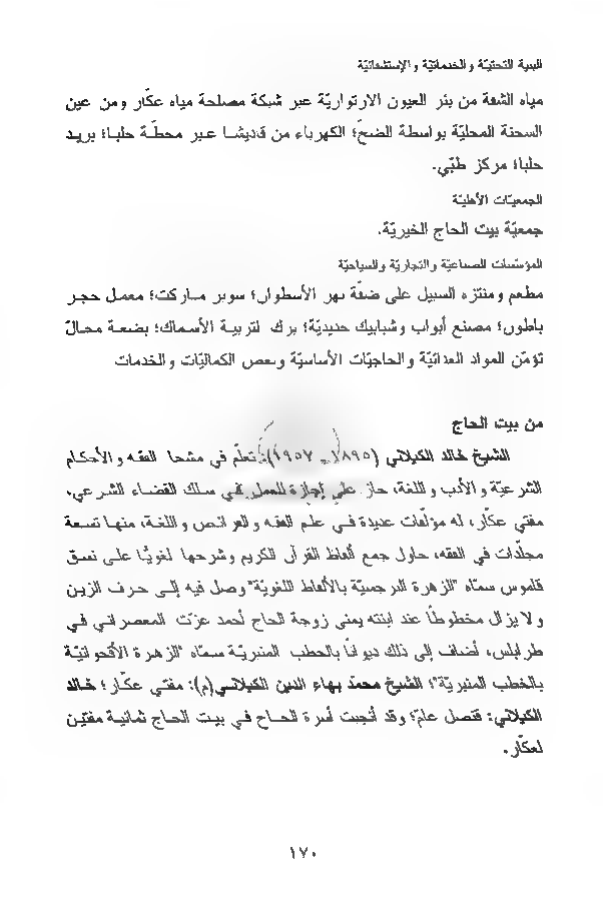 البنية التحتيّة والخدماتيّة والإستشفائيّة
مياه الشفة من بئر العيون الارتوازيّة عبر شبكة مصلحة مياه عكّار ومن عين
السحنة المحليّة بواسطة الضخّ؛ الكهرباء من قاديشا عبر محطّة حلبا؛ بريد
حلبا؛ مركز طبّي.
الجمعيّات الأهليّة
جمعيّة بيت الحاج الخيريّة.
المؤسّسات الصناعيّة والتجاريّة والسياحيّة
مطعم ومنتزه السبيل على ضفّة نهر الأسطوان؛ سوبر ماركت؛ معمل حجر
باطون؛ مصنع أبواب وشبابيك حديديّة؛ برك لتربية الأسماك؛ بضعة محالّ
تؤمّن المواد الغذائيّة والحاجيّات الأساسيّة وبعض الكماليّات والخدمات
من بيت الحاج
الشيخ خالد الكيلاني (١٨٩٥ـ ١٩٥٧): تعلّم في مشحا الفقه والأحكام
الشرعيّة والأدب واللغة، حاز على إجازة للعمل في سلك القضاء الشرعي،
مفتي عكّار، له مؤلّفات عديدة في علم الفقه والفرائض واللغة، منها تسعة
مجلّدات في الفقه، حاول جمع ألفاظ القرآن الكريم وشرحها لغويًّا على نسق
قاموس سمّاه "الزهرة النرجسيّة بالألفاظ اللغويّة" وصل فيه إلى حرف الزين
ولا يزال مخطوطًا عند ابنته يمنى زوجة الحاج أحمد عزّت المعصراني في
طرابلس، أضاف إلى ذلك ديوانًا بالخطب المنبريّة سمّاه "الزهرة الأقحوانيّة
بالخطب المنبريّة"؛ الشيخ محمّد بهاء الدين الكيلاني(م): مفتي عكّار؛ خالد
الكيلاني: قنصل عامّ؛ وقد أنجبت أسرة الحاج في بيت الحاج ثمانية مفتين
لعكّار.
١٧٠